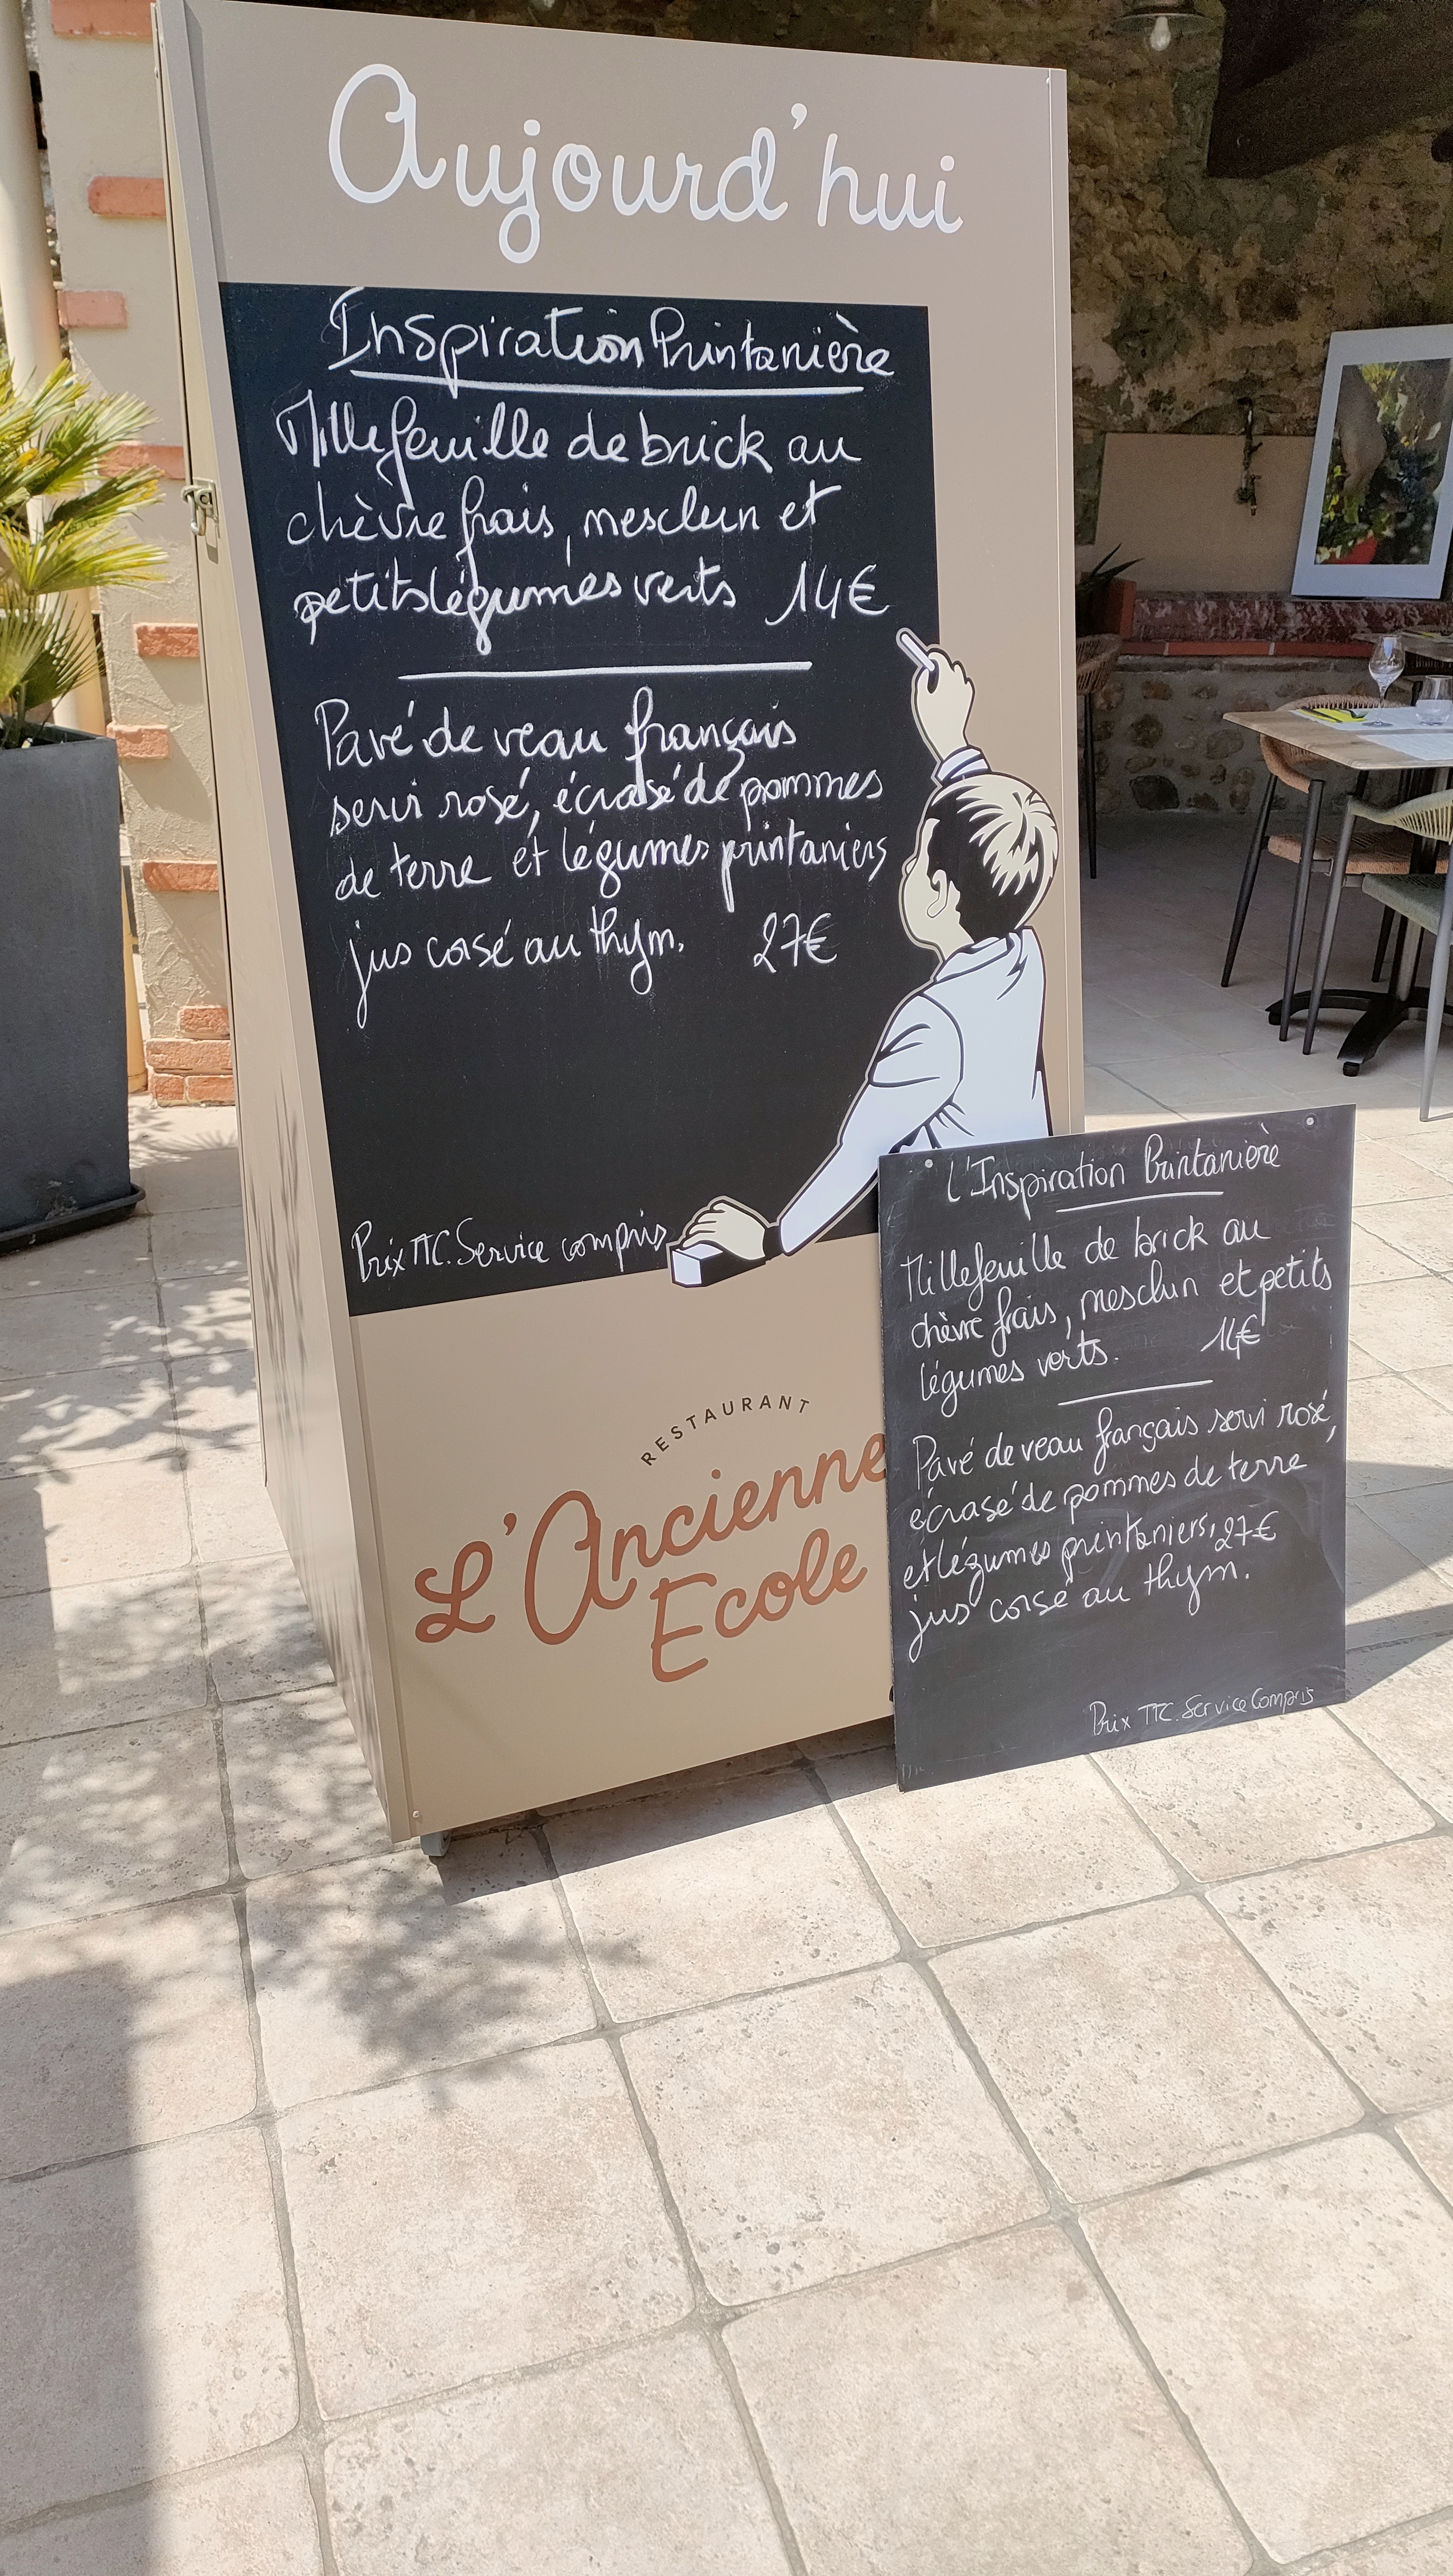 Aujourd'hui
Inspiration Printanière
Millefeuille de brick au
chèvre frais, mesclun et
petits légumes verts 14€
Pavé de veau français
servi rosé, écrasé de pommes
de terre et légumes printaniers
jus corsé au thym. 27€
Prix TTC. Service compris
RESTAURANT
L'Ancienne
Ecole
L'Inspiration Printanière
Millefeuille de brick au
chèvre frais, mesclun et petits
légumes verts. 14€
Pavé de veau français servi rosé,
écrasé de pommes de terre
et légumes printaniers, 27€
jus corsé au thym.
Prix TTC. Service Compris